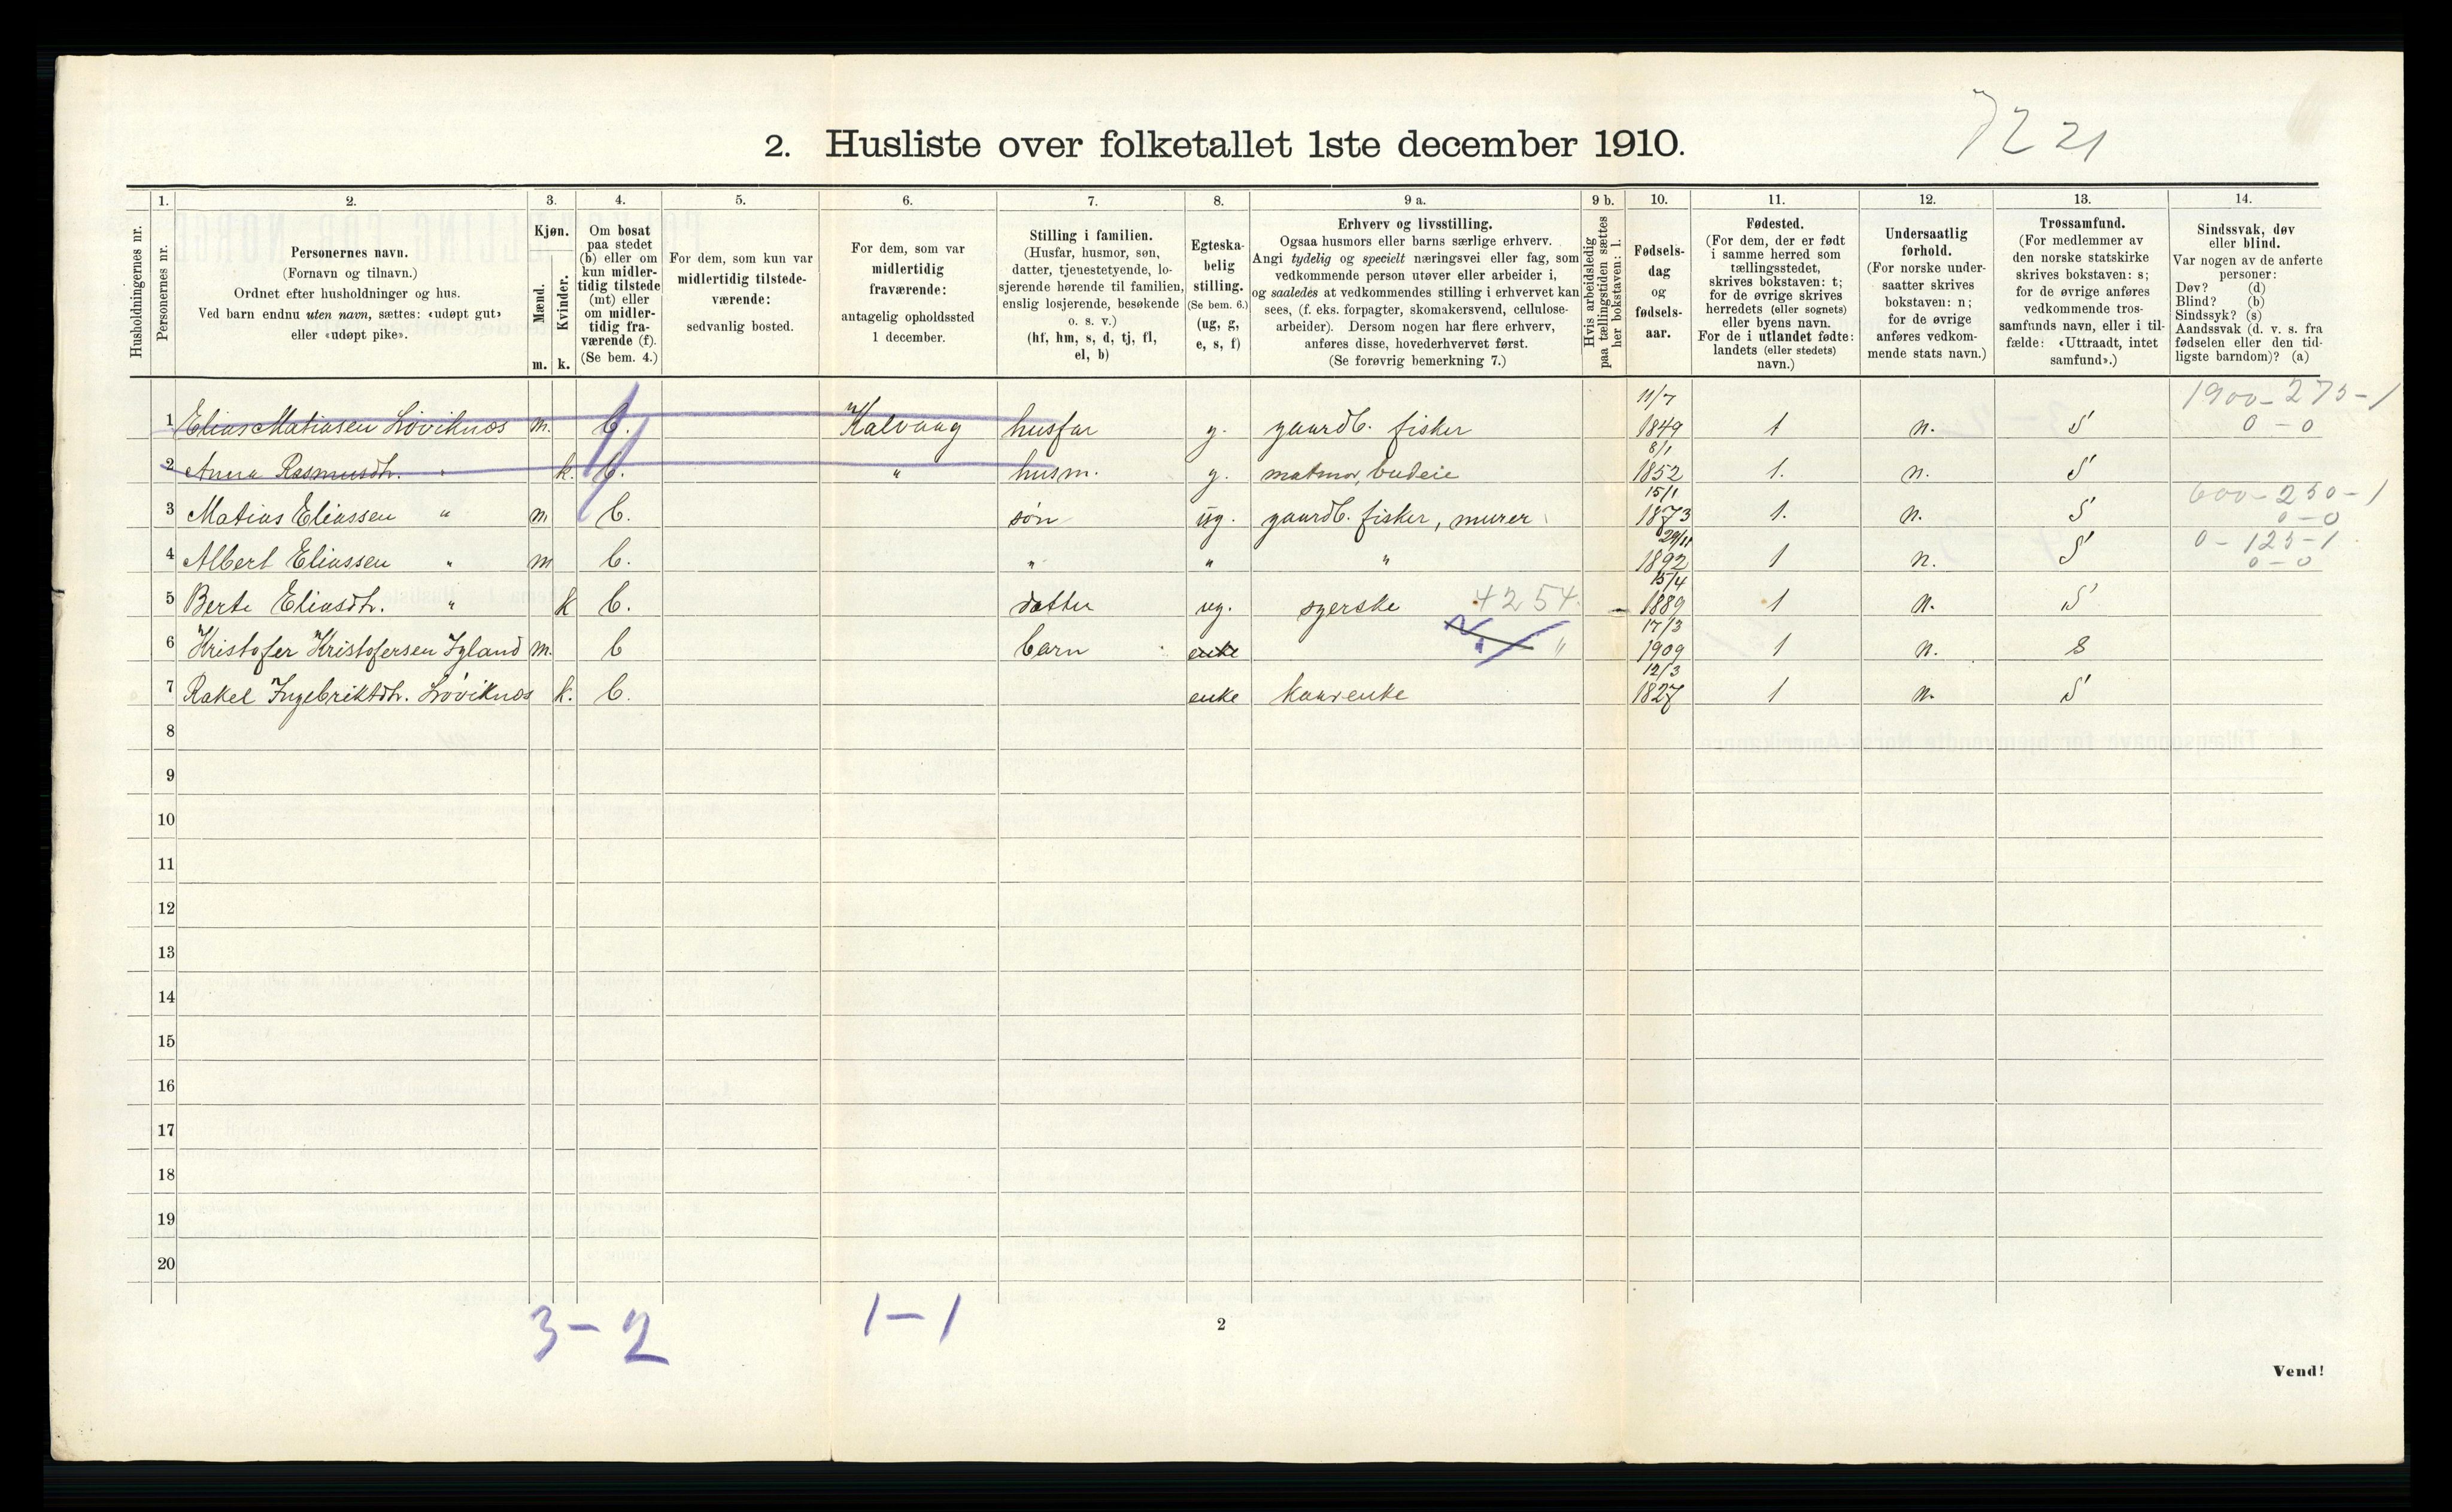 2. Husliste over folketallet 1ste december 1910.
7221
1. 2. 3. 4. 5. 6. 7. 8. 9 a. 9 b. 10. 11. 12. 13. 14.
Husholdningernes nr.
Personernes nr.
Personernes navn.
(Fornavn og tilnavn.)
Ordnet efter husholdninger og hus.
Ved barn endnu uten navn, sættes: «udøpt gut»
eller «udøpt pike».
Kjøn.
Mænd.
Kvinder.
m. k.
Om bosat
paa stedet
(b) eller om
kun midler-
tidig tilstede
(mt) eller
om midler-
tidig fra-
værende (f).
(Se bem. 4.)
For dem, som kun var
midlertidig tilstede-
værende:
sedvanlig bosted.
For dem, som var
midlertidig
fraværende:
antagelig opholdssted
1 december.
Stilling i familien.
(Husfar, husmor, søn,
datter, tjenestetyende, lo-
sjerende hørende til familien,
enslig losjerende, besøkende
o. s. v.)
(hf, hm, s, d, tj, fl,
el, b)
Egteska-
belig
stilling.
(Se bem. 6.)
(ug, g,
e, s, f)
Erhverv og livsstilling.
Ogsaa husmors eller barns særlige erhverv.
Angi tydelig og specielt næringsvei eller fag, som
vedkommende person utøver eller arbeider i,
og saaledes at vedkommendes stilling i erhvervet kan
sees, (f. eks. forpagter, skomakersvend, cellulose-
arbeider). Dersom nogen har flere erhverv,
anføres disse, hovederhvervet først.
(Se forøvrig bemerkning 7.)
Hvis arbeidsledig
paa tællingstiden sættes
her bokstaven: l.
Fødsels-
dag
og
fødsels-
aar.
Fødested.
(For dem, der er født
i samme herred som
tællingsstedet,
skrives bokstaven: t;
for de øvrige skrives
herredets (eller sognets)
eller byens navn.
For de i utlandet fødte:
landets (eller stedets)
navn.)
Undersaatlig
forhold.
(For norske under-
saatter skrives
bokstaven: n;
for de øvrige
anføres vedkom-
mende stats navn.)
Trossamfund.
(For medlemmer av
den norske statskirke
skrives bokstaven: s;
for de øvrige anføres
vedkommende tros-
samfunds navn, eller i til-
fælde: «Uttraadt, intet
samfund».)
Sindssvak, døv
eller blind.
Var nogen av de anførte
personer:
Døv? (d)
Blind? (b)
Sindssyk? (s)
Aandssvak (d. v. s. fra
fødselen eller den tid-
ligste barndom)? (a)
11/7 1900-275-1
1 Elias Matiasen Løviknes m. b. Kalvaag husfar g. gaardb. fisker 1849 1 n. S 0-0
8/1
2 Anna Rasmusdt. " k. b. " husm. g. matmor, budeie 1852 1. n. S
15/1 600-250-1
3 Matias Eliassen " m b. søn ug. gaardb. fisker, murer 1873 1. n. S 0-0
29/11 0-125-1
4 Albert Eliassen " m b. " " " 1892 1 n. S 0-0
15/4
5 Berte Eliasdt. " k b. datter ug. syerske 4254. 1889 1 n. S
17/3
6 Kristofer Kristofersen Igland m. b barn enke " 1909 1 n. S
12/3
7 Rakel Ingebriktdt. Løviknes k. b. enke kaarenke 1827 1 n. S
8
9
10
11
12
13
14
15
16
17
18
19
20
3-2 1-1
2
Vend!